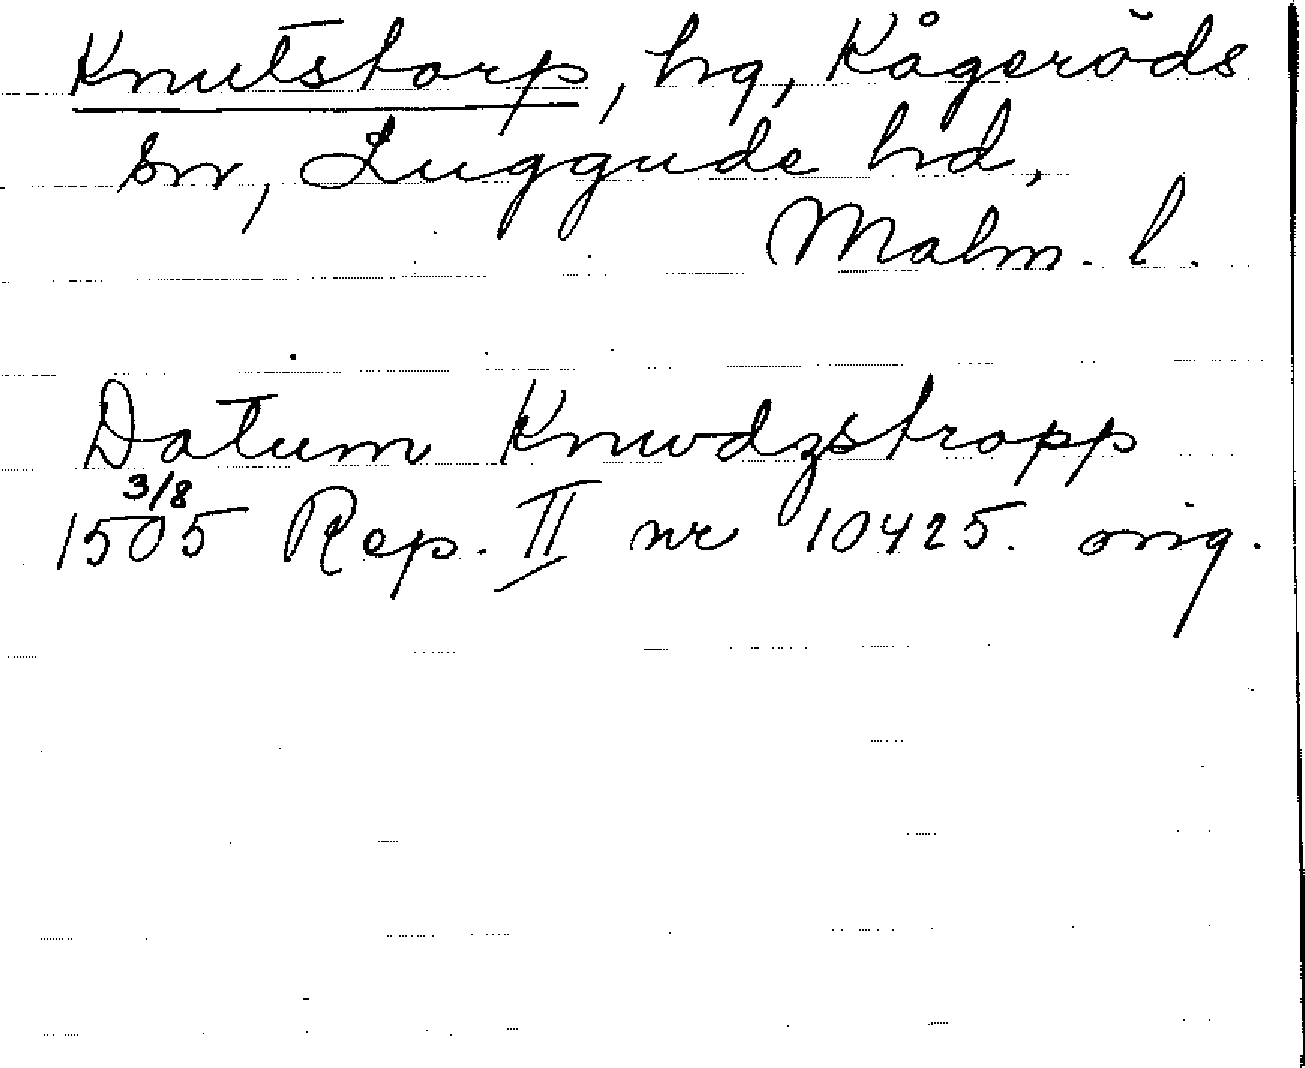 Knutstorp, hg, Kågeröds
sn, Luggude hd,
Malm. l.
Datum Knwdzstropp
3/8
1505 Rep. II nr 10425. orig.